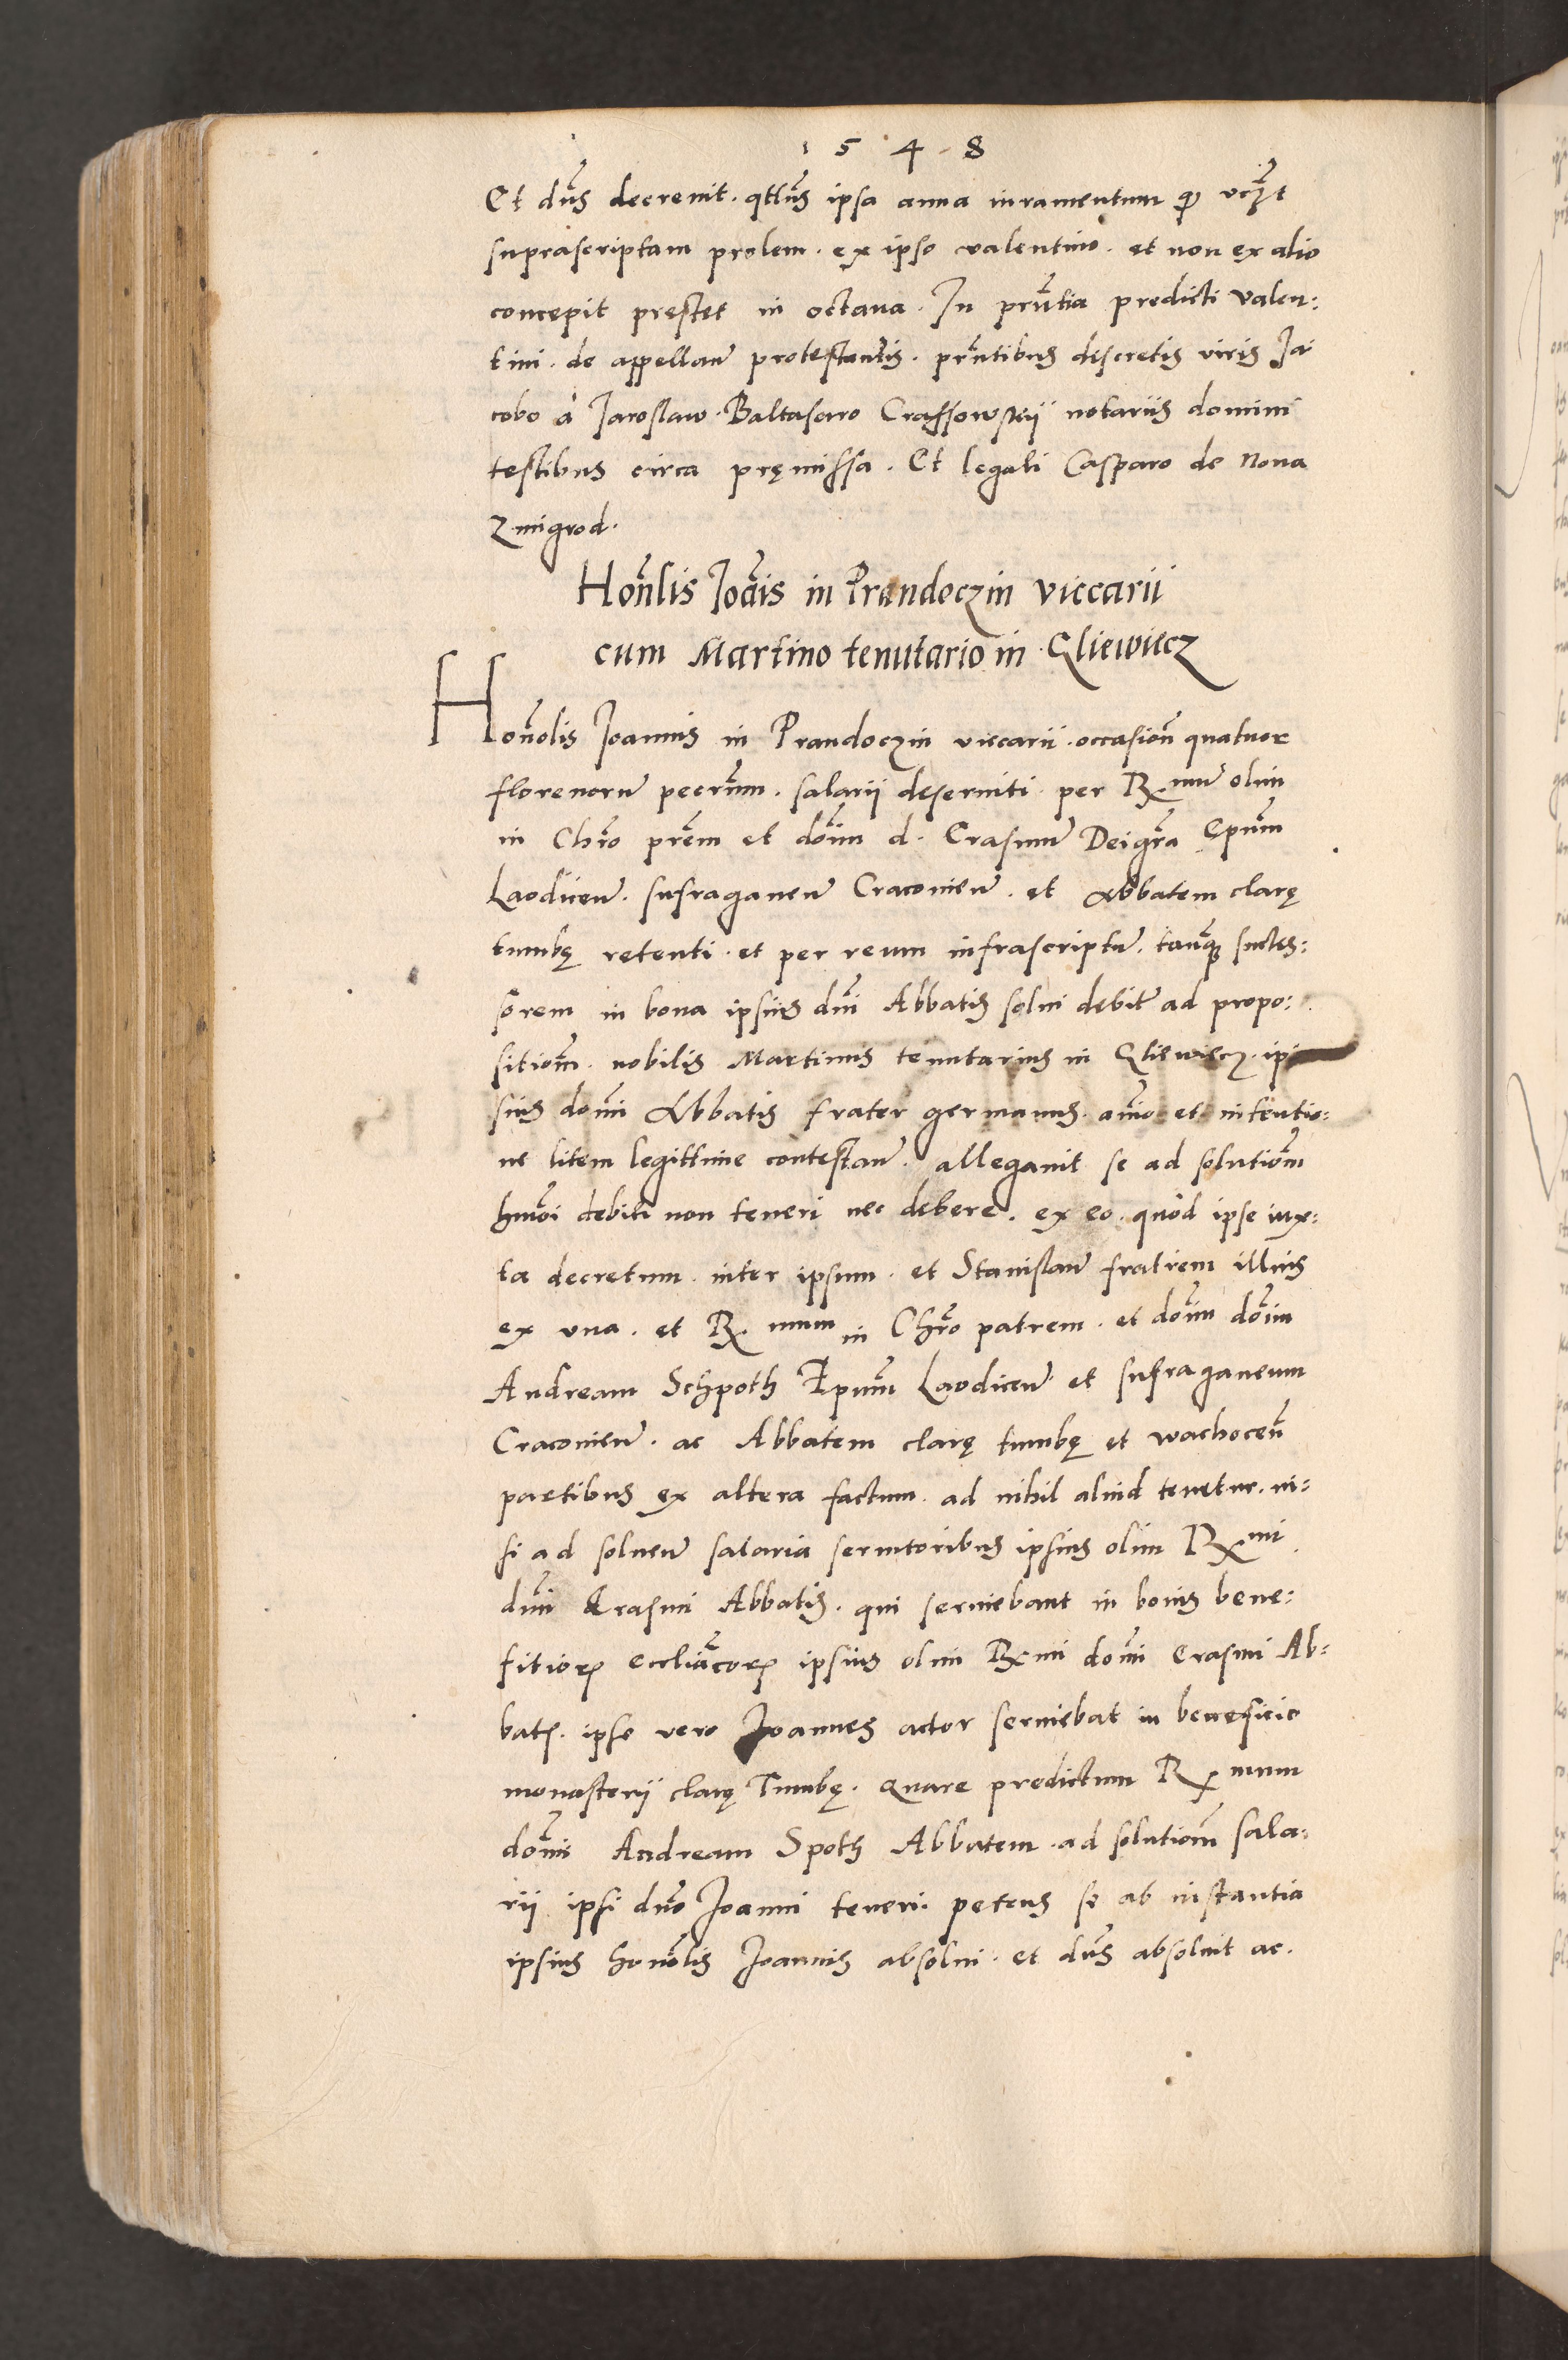 1548
Et dns decrevit. qtlns ipsa anna iuramentum q vczt
suprascriptam prolem. ex ipso valentino. et non ex alio
concepit prestet in octava. In prntia predicti Valen:
tini. de appellan protestantis. prntibus discretis viris Ja
cobo a Jaroslaw. Baltasaro Crassowskij notariis domini
testibus circa pręmissa. Et legali Casparo de Nova
Zmigrod.
Honlis Joais in Prandoczin viccarii
cum Martino tenutario in Gliewiecz
Honolis Joannis in Prandoczin viccarii. occasion quatuor
florenoru pecrum. salarii deserviti. per Rx mu olim
in Chro prem et doim d. Erasmu Dei gra Epum
Laodicen. sufraganeu Cracovien. et Abbatem clarę
tumbę retenti. et per reum infrascriptu. tanq succes:
sorem in bona ipsius dni Abbatis solvi debit ad propo:
sitiom. nobilis Martinus tenutarius in Gliewiecz. ip
sius domi Abbatis frater germanus. aimo et intentio:
ne litem legittime contestan. allegavit se ad solutiom
hmoi debiti non teneri nec debere. ex eo. quod ipse iux:
ta decretum. inter ipsum. et Stanislau fratrem illius
ex una. et Rx mum in Chro patrem. et doim doim
Andream Schpoth Epum Laodicen et sufraganeum
Cracovien. ac Abbatem clarę tumbę et wachocen
partibus ex altera factum. ad nihil aliud tenetur. ni:
si ad solven salaria servitoribus ipsius olim Rx mi
dni Erasmi Abbatis. qui serviebant in bonis bene:
fitiorz eccliacorz ipsius olim Rx mi domi Erasmi Ab:
batis. ipse vero Joannes actor serviebat in beneficio
monasterij clarę Tumbę. Quare predictum Rx mum
domi Andream Spoth Abbatem. ad solutiom sala:
rii ipsi dno Joanni teneri. petens se ab instantia
ipsius honolis Joannis absolvi. et dns absolvit ac.